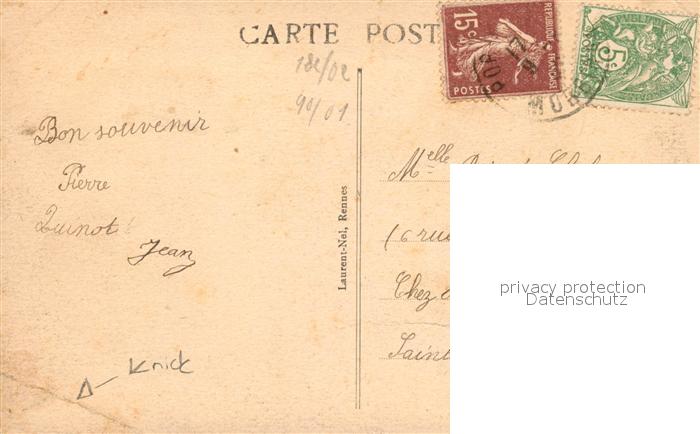 CARTE POST
15c
REPUBLIQUE FRANÇAISE
POSTES
5c
182/02
90/01
Bon souvenir
Pierre
Quinot
Jean
Laurent-Nel, Rennes
Melle
16 rue
Chez
Saint
privacy protection
Datenschutz
Knick